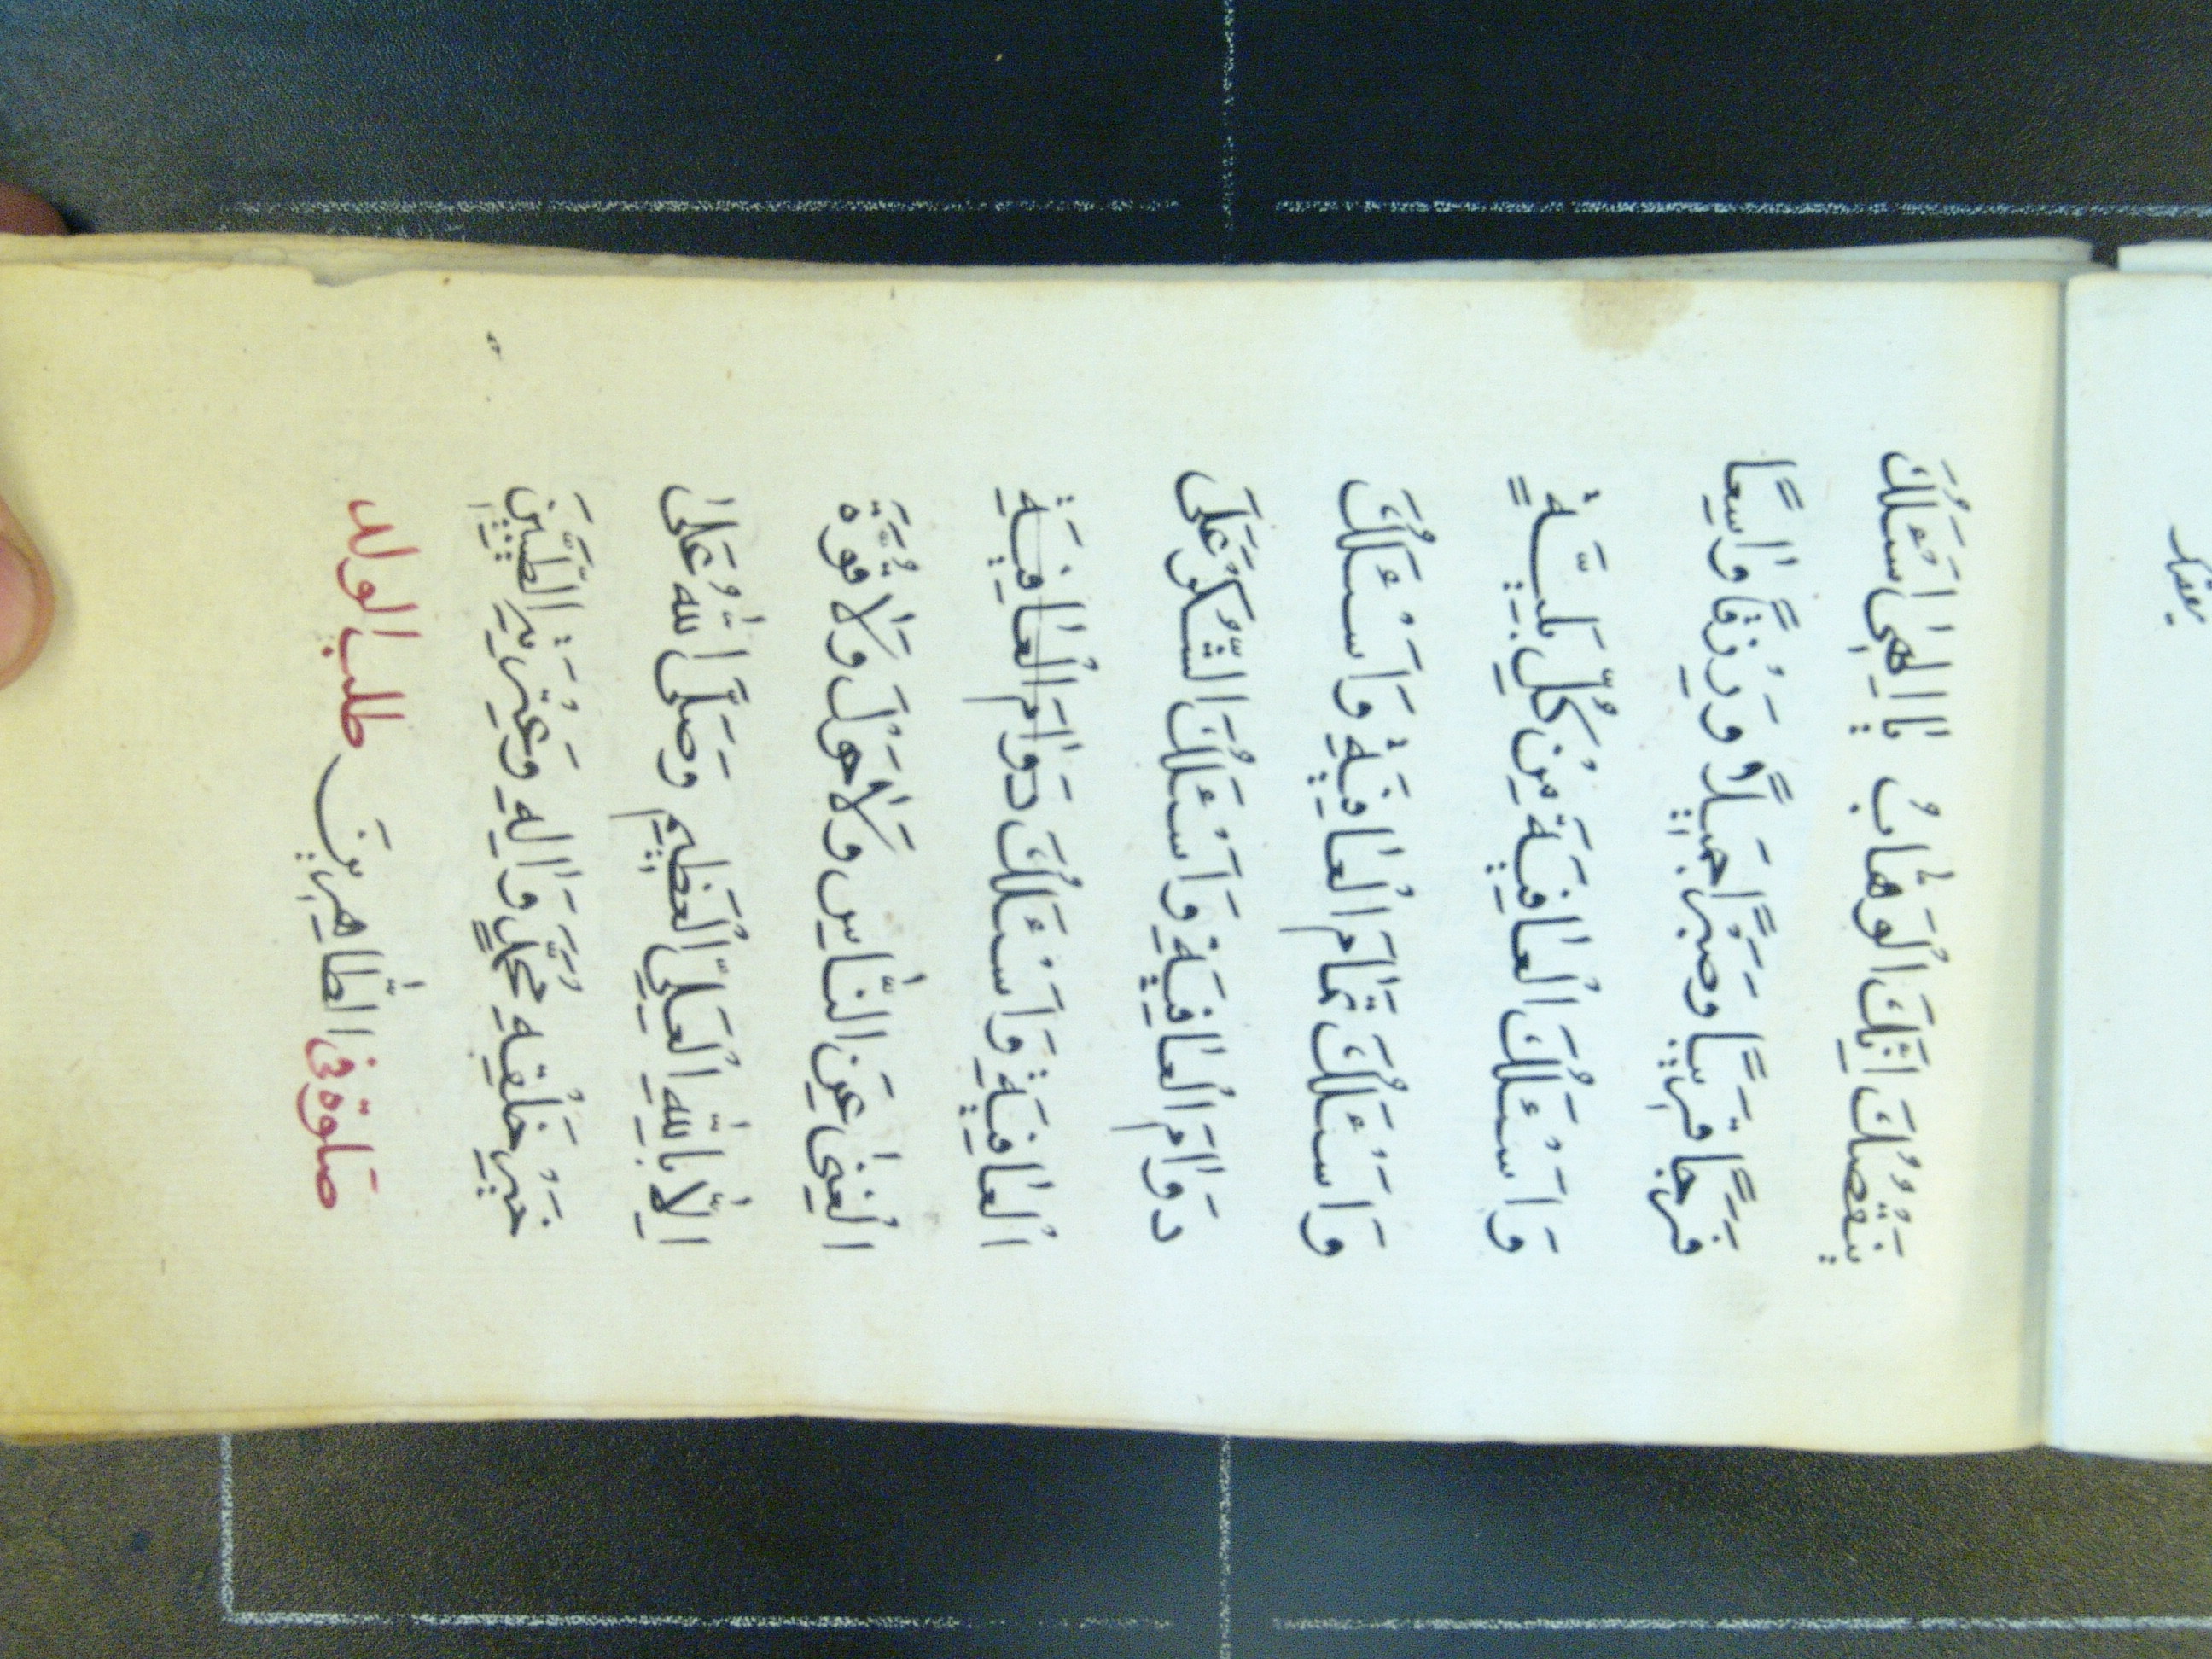 يَنْقُصُكَ اِنَّكَ اَنْتَ الْوَهَّابُ يٰا اِلٰهِى اَسْئَلُكَ
فَرَجًا قَرٖيبًا وَصَبْرًا جَمٖيلًا وَرِزْقًا وٰاسِعًا
وَاَسْئَلُكَ الْعٰافِيَةَ مِنْ كُلِّ بَلِيَّةٍ
وَاَسْئَلُكَ تَمٰامَ الْعٰافِيَةِ وَاَسْئَلُكَ
دَوٰامَ الْعٰافِيَةِ وَاَسْئَلُكَ الشُّكْرَ عَلَى
الْعٰافِيَةِ وَاَسْئَلُكَ دَوٰامَ الْعٰافِيَةِ
الْغِنٰى عَنِ النّٰاسِ وَلٰا حَوْلَ وَلٰا قُوَّةَ
اِلّٰا بِاللّٰهِ الْعَلِىِّ الْعَظٖيمِ وَصَلَّى اللّٰهُ عَلٰى
خَيْرِ خَلْقِهٖ مُحَمَّدٍ وَاٰلِهٖ وَعِتْرَتِهِ الطَّيِّبٖينَ
الطّٰاهِرٖينَ
صَلوة فى طلب الولد
يعفك